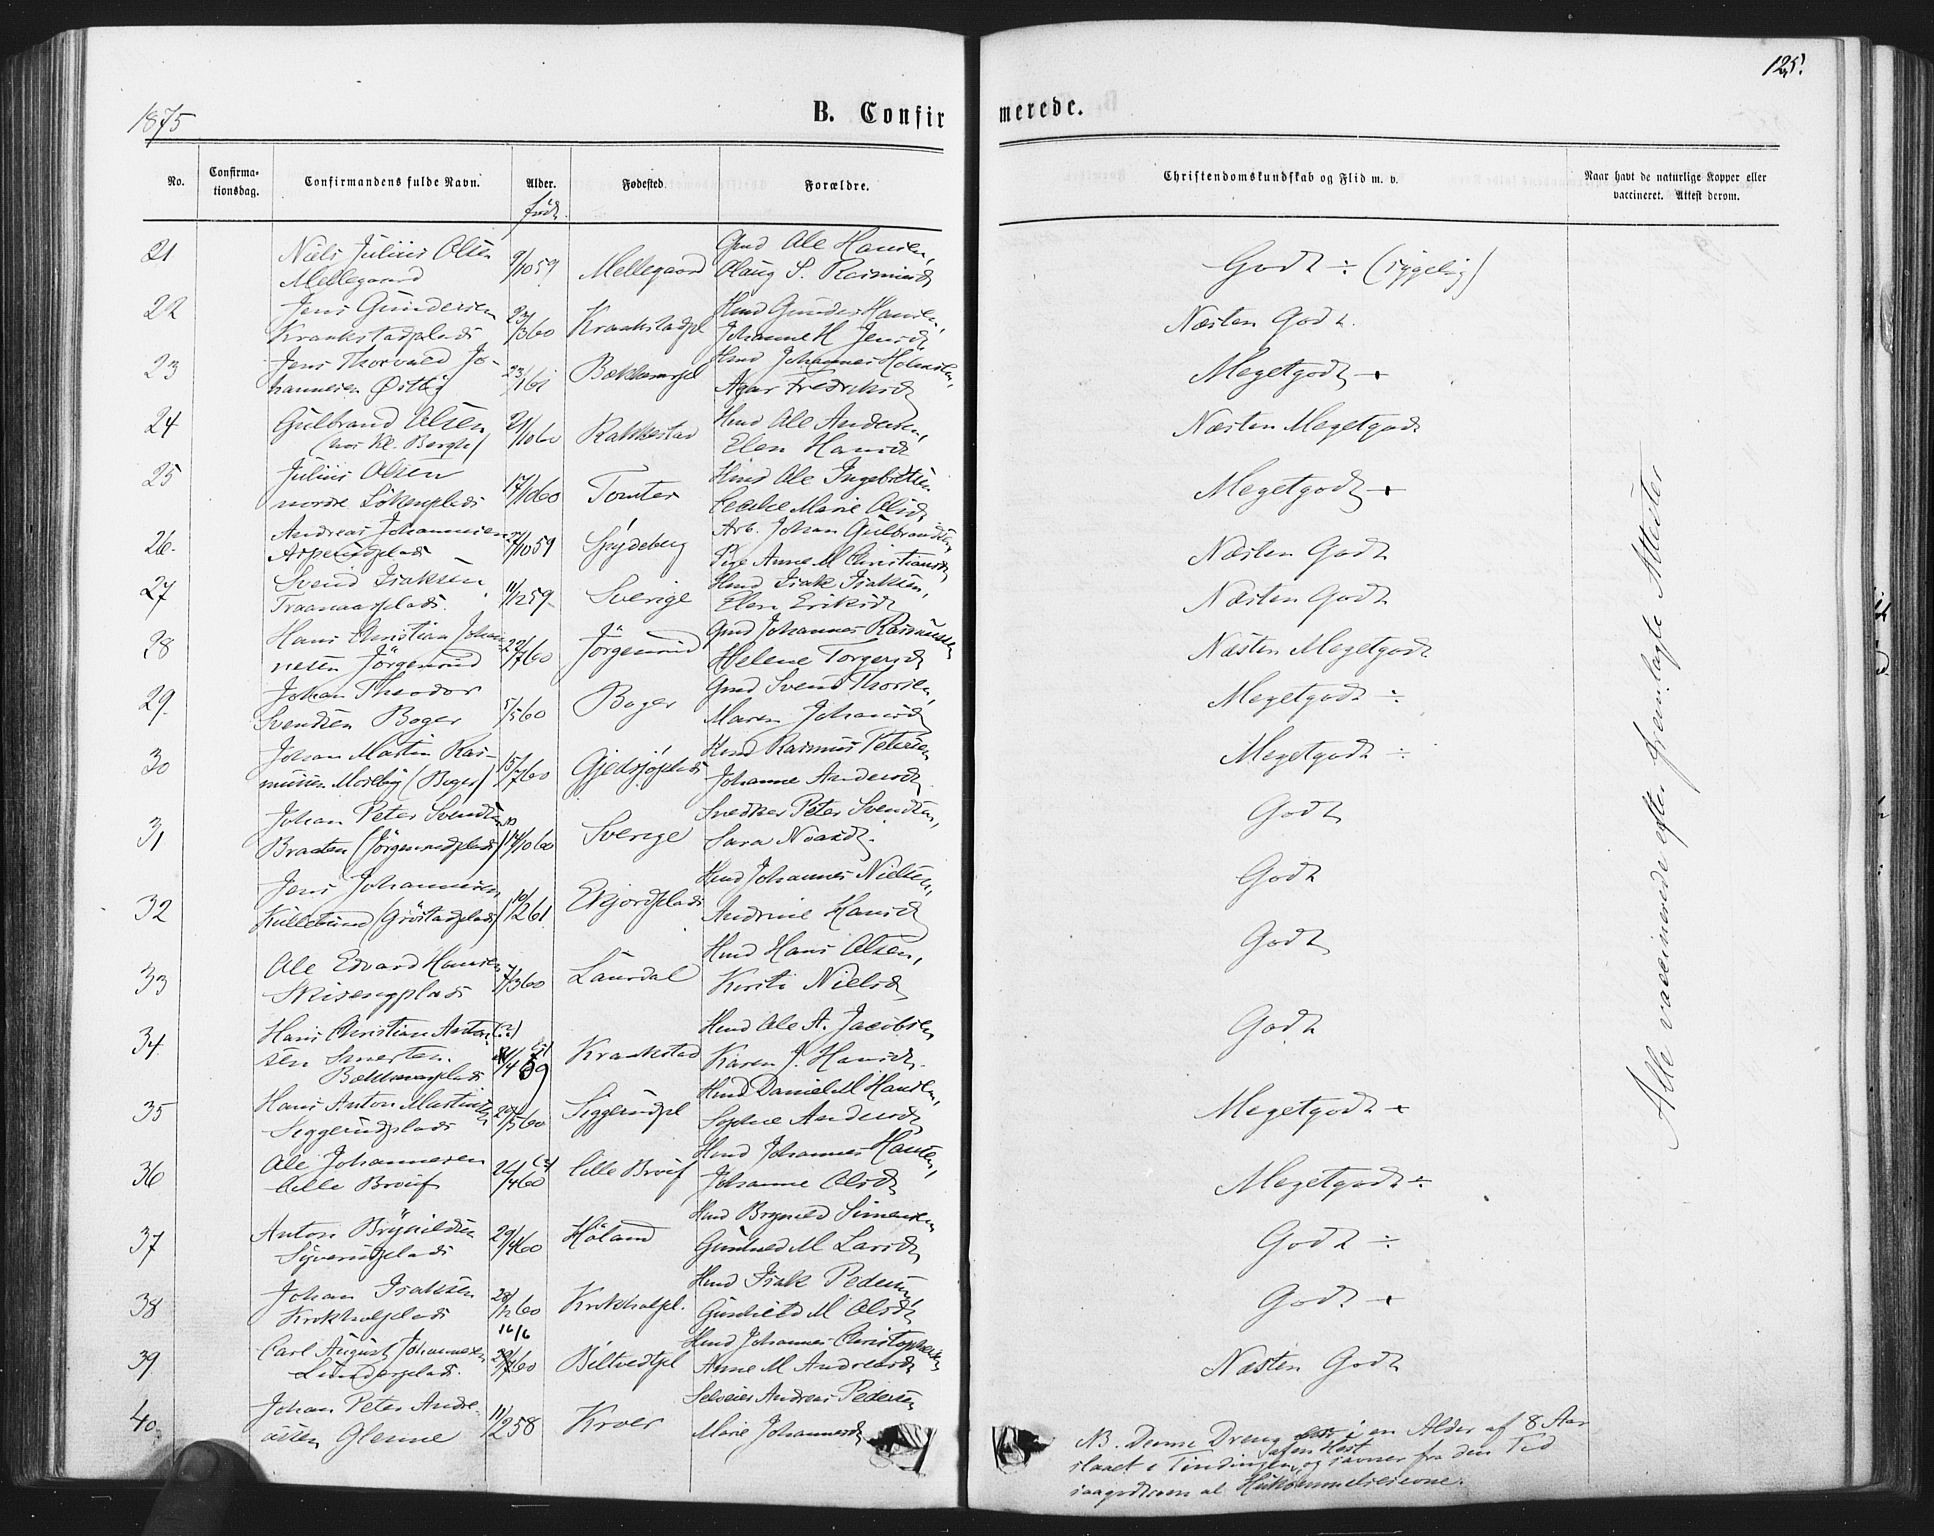 125.
1875
B. Confirmerede.
No. Confirmationsdag. Confirmandens fulde Navn. Alder. Fødested. Forældre. Christendomskundskab og Flid m. v. Naar havt de naturlige Kopper eller vaccineret. Attest derom.
född
21 Niels Julius Olsen 9/10 59 Mellegaard Gmd Ole Hansen, Godt ÷ (sygelig)
Mellegaard Olaug S. Rasmusd
22 Jens Gundersen 23/3 60 Kraakstadpl Hmd Gunder Hansen, Næsten Godt.
Kraakstadplads Johanne H Jensd
23 Jens Thorvald Jo- 23/1 61 Bakkerpl Hmd Johannes Holmsen, Megetgodt +
hannesen Østby Agar Fredriksd
24 Gulbrand Olsen 21/10 60 Rakkestad Hmd Ole Andersen, Næsten Megetgodt
(hos Kl. Bergli) Elen Hansd
25 Julius Olsen 17/10 60 Tomter Hmd Ole Ingebretsen Megetgodt +
nordre Løkenplads Marie Olsd.
26. Andreas Johannesen 27/10 59 Spydeberg Arb. Johan Gulbrandsen, Næsten Godt
Aspelundplads Pige Anne M Christiansd
27 Svend Isaksen, 11/12 59 Sverige Hmd Isak Isaksen, Næsten Godt
Traanaasplads. Elen Eriksd
28 Hans Christian Johan- 22/7 60 Jörgenrud Gmd Johannes Rasmussen Næsten Megetgodt
nesen Jörgenrud Helene Torgersd
29. Johan Theodor 5/5 60 Boger Gmd Svend Thorsen, Megetgodt ÷
Svendsen Boger Maren Johansd
30 Johan Martin Ras- 15/7 60 Gjedsjøplads Hmd Rasmus Petersen Megetgodt ÷
mussen Moseby (Boger) Johanne Andersd
31 Johan Peter Svendsen 14/10 60 Sverige Snedker Peter Svendsen, Godt
Braaten (Jörgenrudplads) Sara Noasd.
32 Jens Johannesen 10/2 61 Ekjordplads Hmd Johannes Nielsen, Godt
Kullebund (Gröstadplads) Andrine Hansd
33 Ole Edvard Hansen 7/3 60 Laurdal Hmd Hans Olsen, Godt
Skisengplads Kirsti Nielsd
34 Hans Christian Anton (?) Kraakstad Hmd Ole A. Jacobsen Godt
sen Smerten. Karen J. Hansd.
Bakkerplads
35 Hans Anton Martinsen 27/5 60 Siggerudpl Hmd Daniel M Hansen, Megetgodt +
Siggerudplads Sophie Andersd
36 Ole Johannesen 24/4 60 Lille Bröif Hmd Johannes Hansen, Megetgodt ÷
Lille Bröif Johanne Olsd
37 Anton Brynildsen 29/4 60 Höland Hmd Brynild Simensen Godt ÷
Syverudplads Gunhild M Larsd
38 Johan Isaksen 28/12 60 Krokholpl. Hmd Isak Pedersen Godt +
Krokholplads Gunhild M Olsd
39 Carl August Johannesen 16/6 60 Biltvedtpl Hmd Johannes Christophersen Næsten Godt
Linderplads. Anne M Andreasd
40. Johan Peter Andre- 11/2 58 Kroer Selveier Andreas Pedersen
asen Glenne Marie Johannesd
NB. Denne Dreng blev i en Alder af 8 Aar
slaaet i Tindingen af en Hest, og savner fra den Tid
saagodtsom al Hukommelsesevne.
Alle vaccinerede efter fremlagte Attester